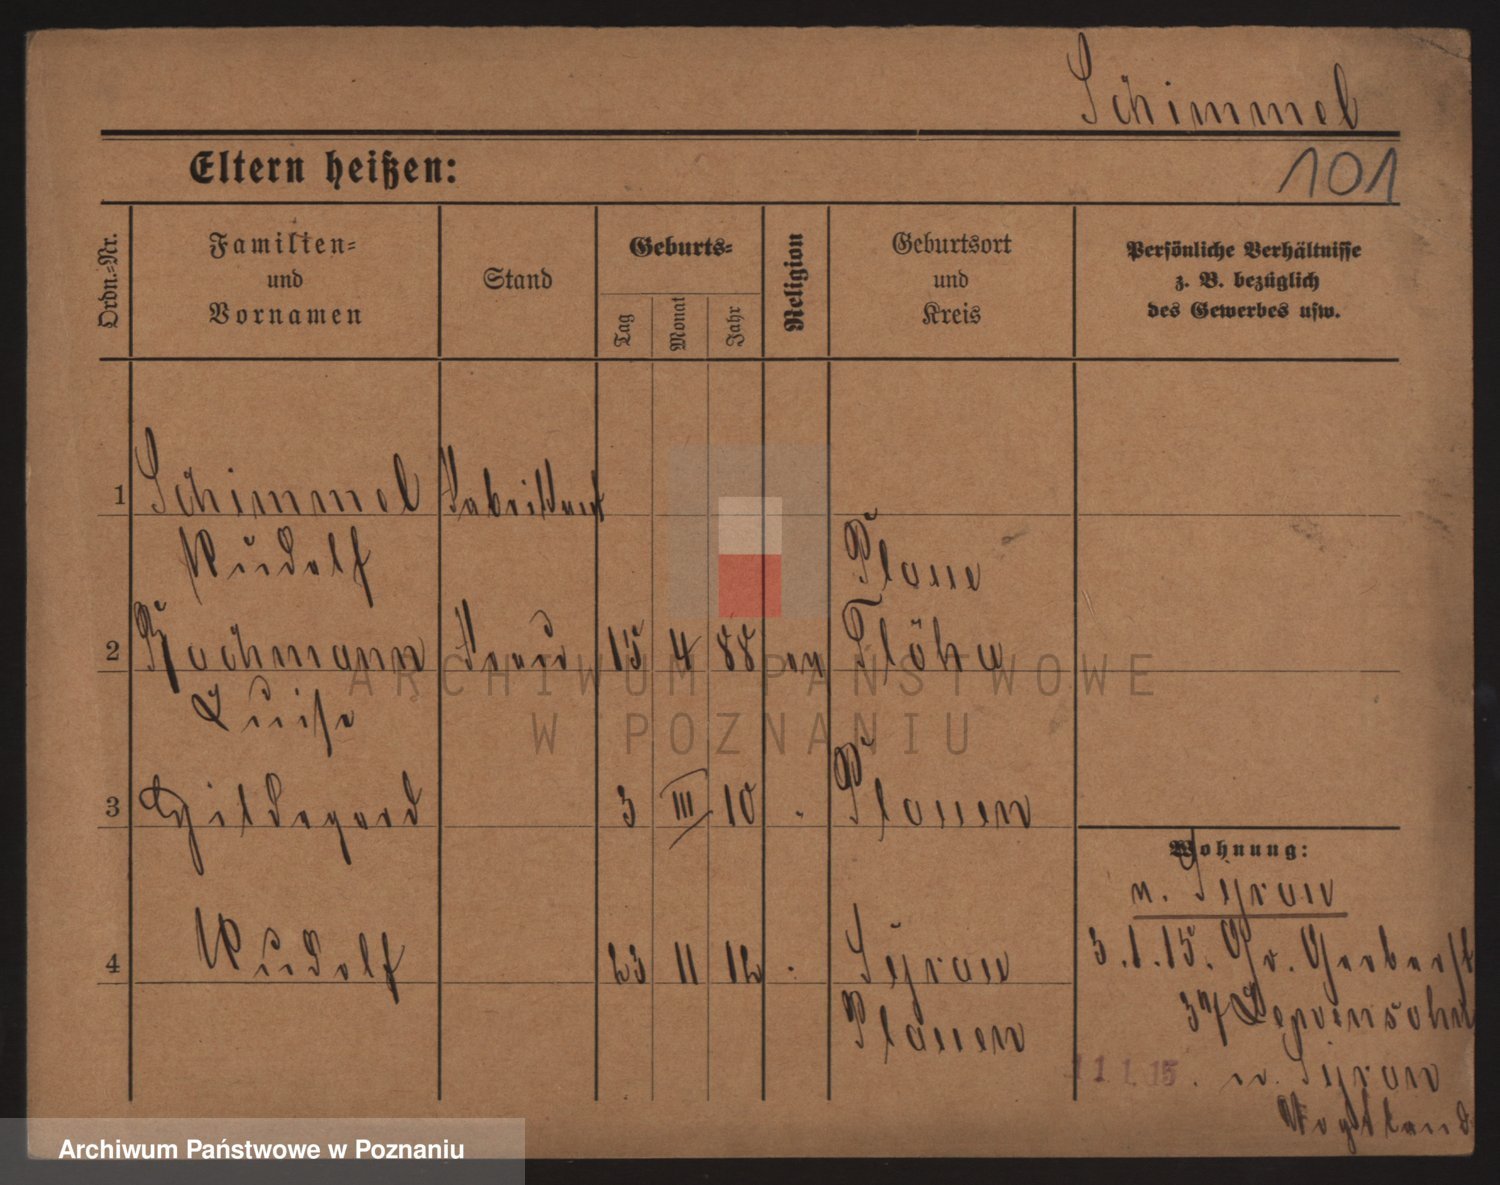 Schimmel
Eltern heißen:
101
Ordn.-Nr.
Familien-
und
Vornamen
Stand
Geburts-
Tag
Monat
Jahr
Religion
Geburtsort
und
Kreis
Persönliche Verhältnisse
z. B. bezüglich
des Gewerbes usw.
1 Schimmel Fabrikant
Rudolf Plaue
2 Bachmann Frau 15 4 88 ev Flöha
Luise
3 Hildegard 3 III 10 Plauen
Wohnung:
n. Syrau
4 Rudolf 23 11 12 Syrau
3.1.15. Gr. Gerberst
37
Plauen
11 1. 15. n. Syrau
Vogtland
ARCHIWUM PAŃSTWOWE
W POZNANIU
Archiwum Państwowe w Poznaniu